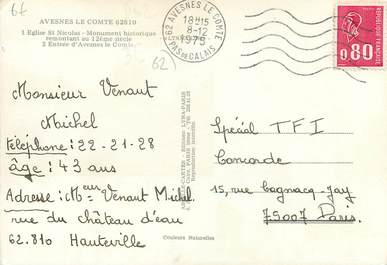 67
AVESNES LE COMTE 62810
1 Eglise St Nicolas - Monument historique
remontant au 12ème siècle
2 Entrée d'Avesnes le Comte
62 AVESNES LE COMTE
18H15
8-12
1975
PAS DE CALAIS
REPUBLIQUE FRANÇAISE
0,80
62)
Monsieur Venaut
Michel
téléphone: 22-21-28
âge: 43 ans
Adresse: Meur Venaut Michel
rue du château d'eau
62.810 Hauteville
Spécial TFI
Concorde
15, rue Cognacq-Jay
75007 Paris
Couleurs Naturelles